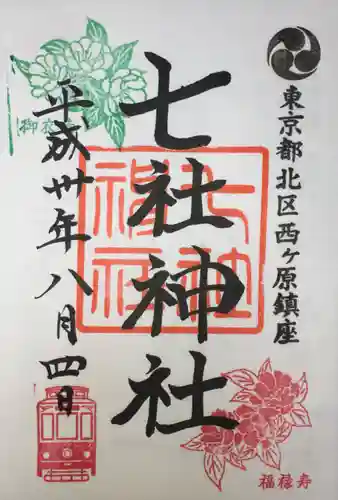 東京都北区西ヶ原鎮座
七社神社
平成卅年八月四日
福禄寿